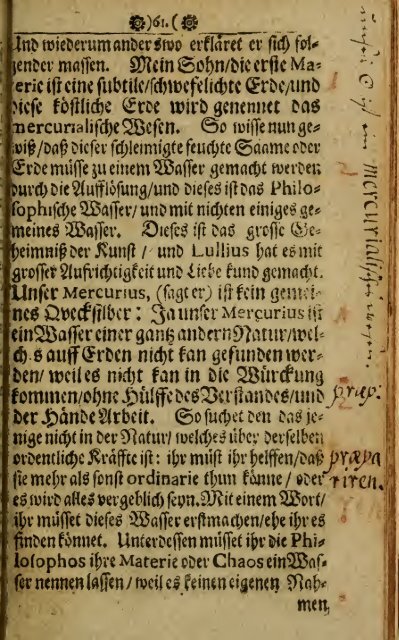 )61.(
Und wiederum anderswo erkläret er sich fol-
gender massen. Mein Sohn/die erste Ma-
terie ist eine subtile/schwefelichte Erde/und
diese köstliche Erde wird genennet das
mercurialische Wesen. So wisse nun ge-
wiß/daß dieser schleimigte feuchte Saame oder
Erde müsse zu einem Wasser gemacht werden
durch die Aufflösung/und dieses ist das Philo-
sophische Wasser/und mit nichten einiges ge-
meines Wasser. Dieses ist das grosse Ge-
heimniß der Kunst/ und Lullius hat es mit
grosser Auffrichtigkeit und Liebe kund gemacht.
Unser Mercurius, (sagt er) ist kein gemei-
nes Qvecksilber: Ja unser Mercurius ist
ein Wasser einer gantz andern Natur/wel-
ch.s auff Erden nicht kan gefunden wer-
den/ weil es nicht kan in die Würckung
kommen/ohne Hülffe des Verstandes/und
der Hände Arbeit. So suchet den das je-
nige nicht in der Natur/welches über derselben
ordentliche Kräffte ist: ihr müst ihr helffen/daß
sie mehr als sonst ordinarie thun könne/ oder
es wird alles vergeblich seyn. Mit einem Wort/
ihr müsset dieses Wasser erst machen/ehe ihr es
finden könnet. Unterdessen müsset ihr die Phi-
losophos ihre Materie oder Chaos ein Was-
ser nennen lassen/ weil es keinen eigenen Nah-
men,
mercurialisches wesen.
præp:
præpa
riren.